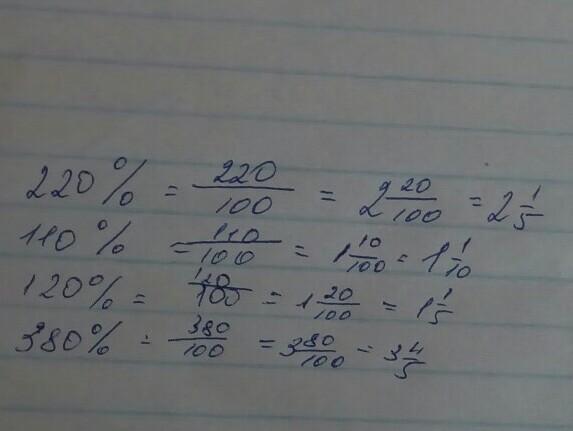 220% = 220/100 = 2 20/100 = 2 1/5
110% = 110/100 = 1 10/100 = 1 1/10
120% = 120/100 = 1 20/100 = 1 1/5
380% = 380/100 = 3 80/100 = 3 4/5